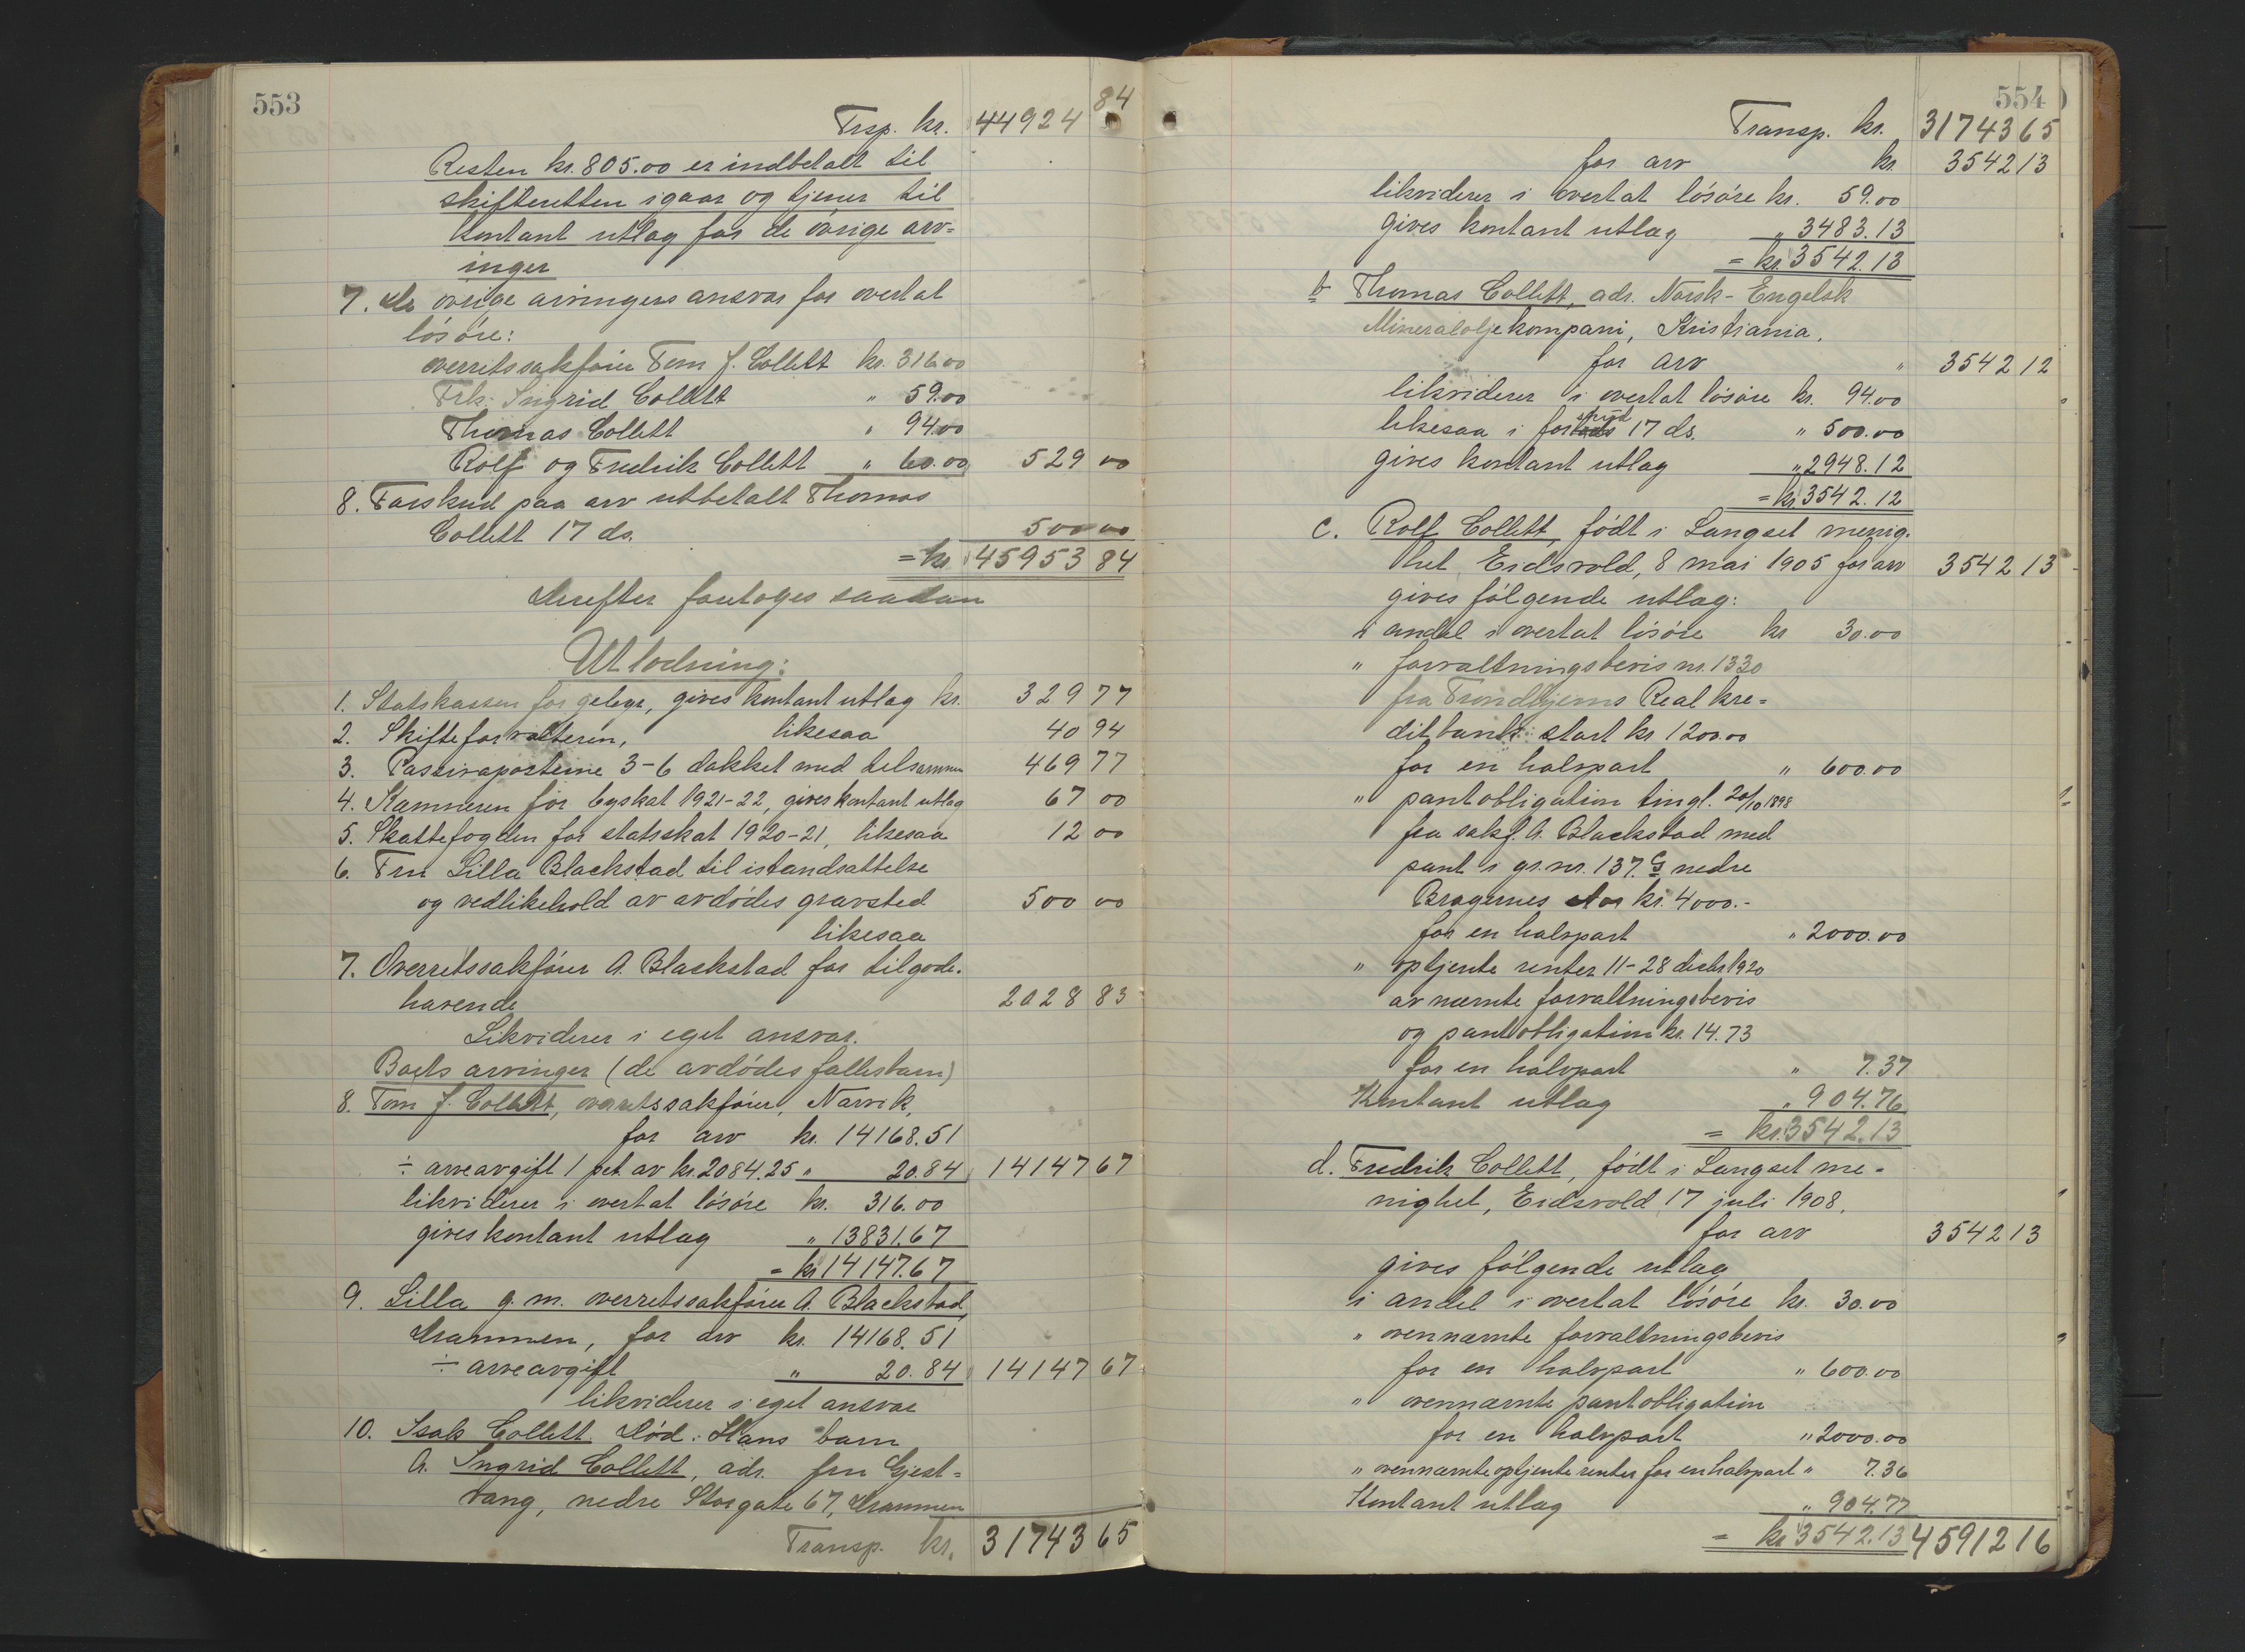 553
Trsp. kr. 44924 84
Resten kr. 805.00 er indbetalt til
skifteretten igaar og tjener til
kontant utlæg for de övrige arv=
inger
7. De övrige arvingers ansvar for overtat
lösöre:
overretssakförer Tom J. Collett kr. 316.00
Frk. Ingrid Collett " 59.00
Thomas Collett " 94.00
Rolf og Fredrik Collett " 60.00 529 00
8. Forskud paa arv utbetalt Thomas
Collett 17 ds. 500 00
= kr. 45953 84
Derefter foretoges saadan
Utlodning:
1. Statskassen for gebyr, gives kontant utlæg kr. 329 77
2. Skifteforvalteren, likesaa 40 94
3. Passivaposterne 3-6 dækket med tilsammen 469 77
4. Kæmneren for byskat 1921-22, gives kontant utlæg 67 00
5. Skattefogden for statsskat 1920-21, likesaa 12 00
6. Fru Lilla Blackstad til istandsættelse
og vedlikehold av avdödes gravsted 500 00
likesaa
7. Overretssakförer A. Blackstad for tilgode-
havende 2028 83
Likviderer i eget ansvar.
Boets arvinger (de avdödes fællesbarn)
8. Tom J. Collett, overretssakförer, Narvik,
for arv kr. 14168.51
÷ arveavgift 1 pct. av kr. 2084.25 " 20.84 14147 67
likviderer i overtat lösöre kr. 316.00
gives kontant utlæg " 13831.67
= kr. 14147.67
9. Lilla g. m. overretssakförer A. Blackstad,
Drammen, for arv kr. 14168.51
÷ arveavgift " 20.84 14147 67
likviderer i eget ansvar
10. Isak Collett. Död. Hans barn
a. Ingrid Collett, adr. fru Gjest=
vang, nedre Storgate 67, Drammen
Transp. kr. 31743 65
554
Transp. kr. 31743 65
for arv kr. 3542 13
likviderer i overtat lösöre kr. 59.00
gives kontant utlæg " 3483.13
= kr. 3542.13
b Thomas Collett, adr. Norsk-Engelsk
Mineraloljekompani, Kristiania,
for arv " 3542 12
likviderer i overtat lösöre kr. 94.00
likesaa i forskud 17 ds. " 500.00
gives kontant utlæg " 2948.12
= kr. 3542.12
c. Rolf Collett, födt i Langset menig-
het, Eidsvold, 8 mai 1905 for arv 3542 13
gives fölgende utlæg:
i andel i overtat lösöre kr 30.00
" forvaltningsbevis nr. 1330
fra Trondhjems Real kre=
ditbank: stort kr 1200.00
for en halvpart " 600.00
" pantobligation tingl. 20/10 1898
fra sakf. A. Blackstad med
pant i gr. nr. 137. G nedre
Bragernes stor kr. 4000.-
for en halvpart " 2000.00
" optjente renter 11-28 decbr 1920
av nævnte forvaltningsbevis
og pantobligation kr. 14.73
for en halvpart " 7.37
Kontant utlæg " 904.76
= kr. 3542.13
d. Fredrik Collett, födt i Langset me-
nighet, Eidsvold 17 juli 1908,
for arv 3542 13
gives fölgende utlæg
i andel i overtat lösöre kr. 30.00
" ovennævnte forvaltningsbevis
for en halvpart " 600.00
" ovennævnte pantobligation
for en halvpart " 2000.00
" ovennævnte optjente renter for en halvpart " 7.36
Kontant utlæg " 904.77
= kr. 3542.13 45912 16